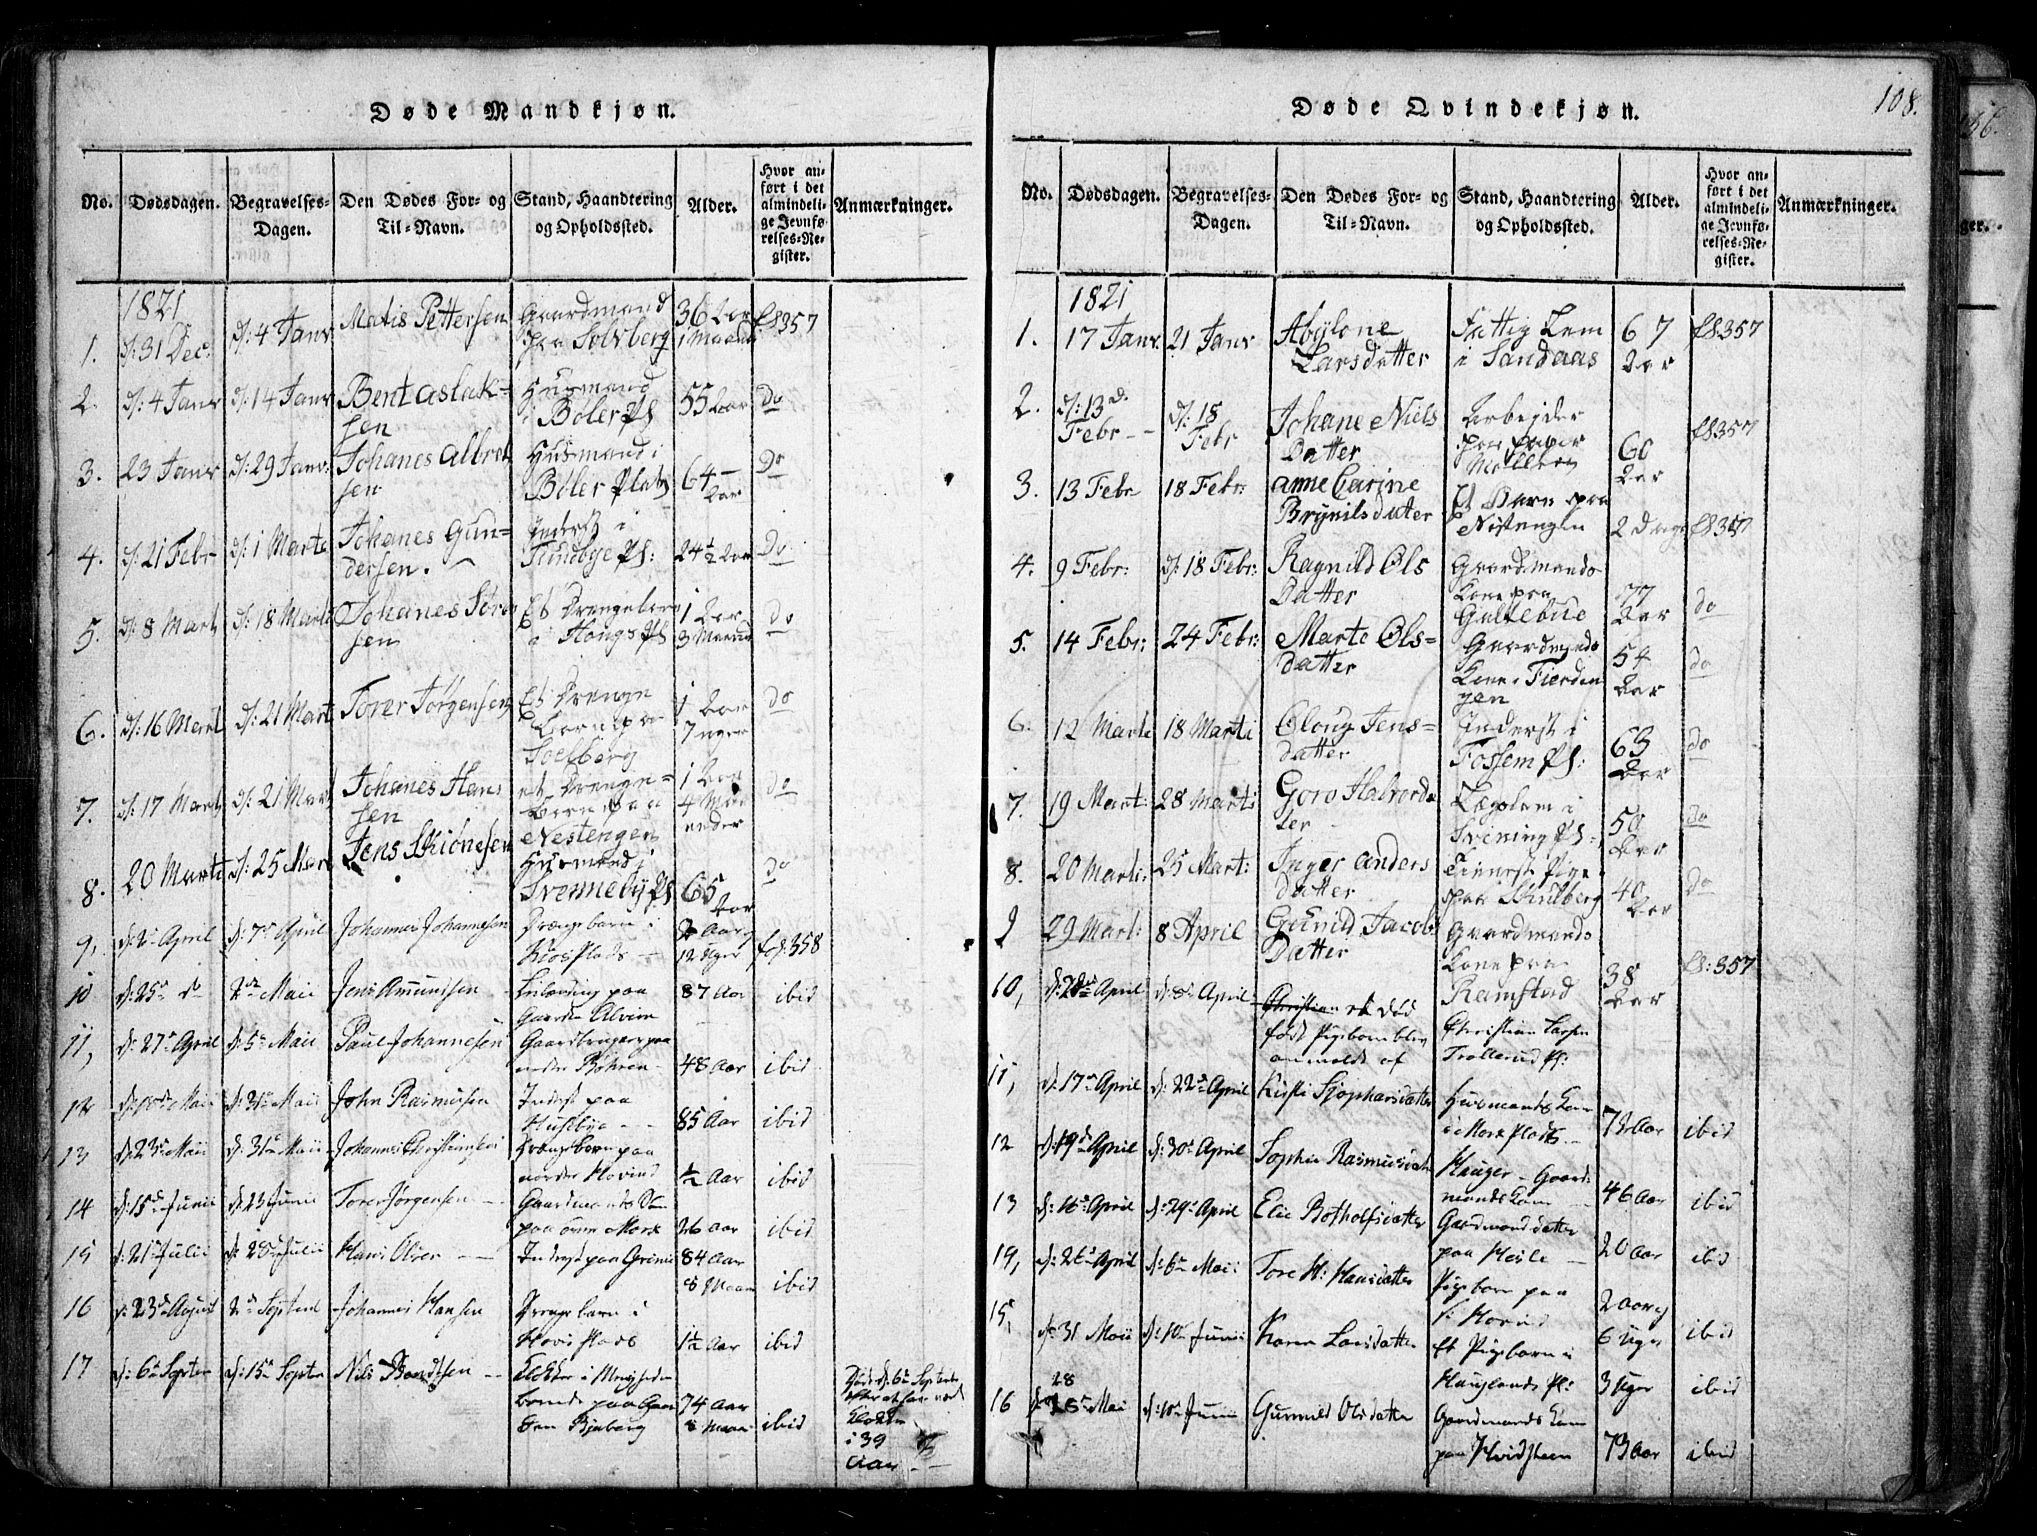 108.
Døde Mandkjøn.
No. Dødsdagen. Begravelses-Dagen. Den Dødes For- og Til-Navn. Stand, Haandtering og Opholdssted. Alder. Hvor anført i det almindelige Jevnførelses-Register. Anmærkninger.
1821
1. d: 31 Dec: d: 4 Janr Matis Pettersen Gaardmand paa Solberg 36 Aar 1 Maaned fS 357
2. d: 4 Janr d: 14 Janr Bent Aslaksen Husmand i Bøler Ps 55 Aar Do
3. 23 Janr d: 29 Janr: Johanes Albretsen Husmand i Bøler Plads 64 Aar Do
4. d: 21 Febr d: 1 Marti Johanes Gundersen. Inderst i Tundbye Ps: 24½ Aar Do
5. d: 8 Mart d: 18 Marti Johanes Sørensen Et Drengebarn i Hougs Ps 1 Aar 3 Maaned do
6. d: 16 Mart d: 21 Mart Torer Jørgensen Et Drenge Barn paa Soelberg 1 Aar 7 uger do
7. d: 17 Mart d: 21 Mart Johanes Hansen et Drenge-Barn paa Nestengen 1 Aar 4 Maaneder do
8. 20 Marti d: 25 Mart Jens Skionesen Husmand i Svenneby Ps 65 Aar do
9, d: 2 April d: 7 April Johannes Johannesen Drængebarn i Plads 12 Uger fS: 358
10 d: 25 d 2 Maii Jens Amundsen paa Gaarden Alvim 87 Aar ibid
11, d: 27 April d: 5 Maii Paul Johannesen Gaardbruger paa nedre Bøhren 48 Aar ibid
12 d: 10 Maii d: 31 Maii John Rasmusen Inderst paa Huseby 85 Aar ibid
13 d: 23 Maii d: 31 Maii Johannes Christensen Drængebarn paa nordre Hovind ½ Aar ibid
14 d: 15 Junii d: 23 Junii Torer Jørgensen Gaardmands Søn paa øvre Mork 26 Aar ibid
15 d: 21 Julii d: 28 Julii Hans Olsen Inderst paa 84 Aar 8 Maan ibid
16 d: 23 August 2 Septem Johannes Hansen Drengebarn i Plads 1½ Aar ibid
17 d: 6 Septem d: 15 Septem Nils Bendtsen Klokker i Menigheden boende paa Gaarden Bjerberg 74 Aar 8 Maan ibid Døde d: 6 Septem Klokker i 39 Aar
Døde Qvindekjøn.
No. Dødsdagen. Begravelses-Dagen. Den Dødes For- og Til-Navn. Stand, Haandtering og Opholdssted. Alder. Hvor anført i det almindelige Jevnførelses-Register. Anmærkninger.
1821
1. 17 Janr. 21 Janr Abylone Larsdatter Fattig Lem i Sandaas 67 Aar fS 357
2. d: 13 d. Febr d: 18 Febr Johane Niels Datter Arbejder 60 Aar fS 357
3. 13 Febr 18 Febr: Anne Carine Brynilsdatter Et Barn paa Nestengen 2 Dage fS 357
4. 9 Febr: d: 18 Febr: Ragnild Ols Datter Gaardmands Kone paa Gultebue 77 Aar do
5. 14 Febr: 24 Febr: Marte Ols-datter Gaardmands Kone i Fierdingen 54 Aar do
6. 12 Marti 18 Marti Oloug Jens-datter Inderst i Fossem Ps: 63 Aar do
7. 19 Mart: 28 Marti Goro Halvorda ter Lægslem i Svining Ps: 50 Aar do
8. 20 Marti: 25 Mart: Inger Anders datter Tienest Pige paa Skulberg 40 Aar Do
9 29 Mart: 8 April Gunild Jacobs Datter Gaardmands Kone paa Ramstad 38 Aar fS: 357
10, d: 2 April d: 8 April Christian et død født Pigebarn blev anmeldt af Christian Larsen Trollerud Ps:
11, d: 17 April d: 22 April Kirsti Sjophersdatter Husmands Kone i Mork Plads 73 Aar ibid
12 d: 19 April d: 30 April Sophie Rasmusdatter Hauger Gaardmands Kone 46 Aar ibid
13 d: 16 April d: 29 April Elie Botholfsdatter Gaardmands datter paa Hesle 20 Aar ibid
14, d: 26 April d: 6 Maii Tore H: Hansdatter Pigebarn paa N: Hovind 2 Aar og 6 Uger ibid
15, d: 31 Maii d: 10 Junii Karen Larsdatter Et Pigebarn i Hauglands Ps: 3 Uger ibid
16 28 Maii d: 10 Junii Gunnild Olsdatter Gaardmands Kone paa Hvidsteen 73 Aar ibid